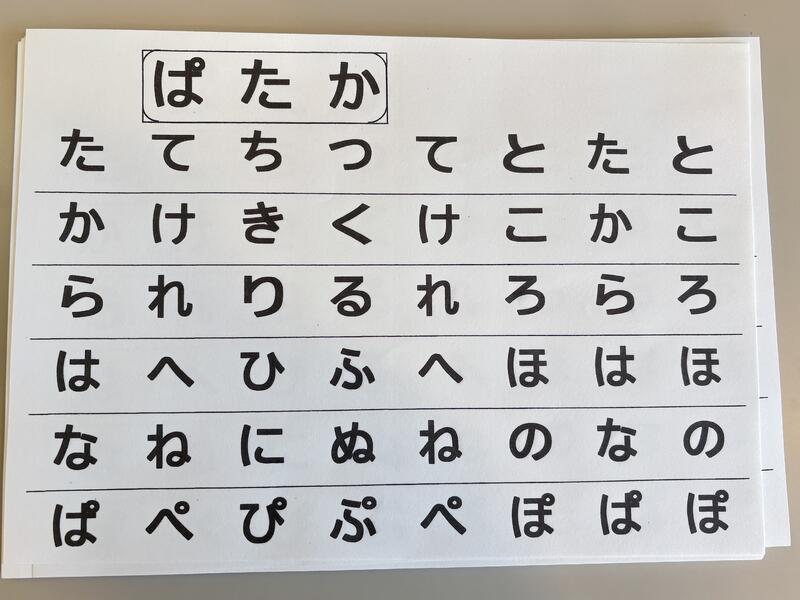 ぱ た か
た て ち つ て と た と
か け き く け こ か こ
ら れ り る れ ろ ら ろ
は へ ひ ふ へ ほ は ほ
な ね に ぬ ね の な の
ぱ ぺ ぴ ぷ ぺ ぽ ぱ ぽ